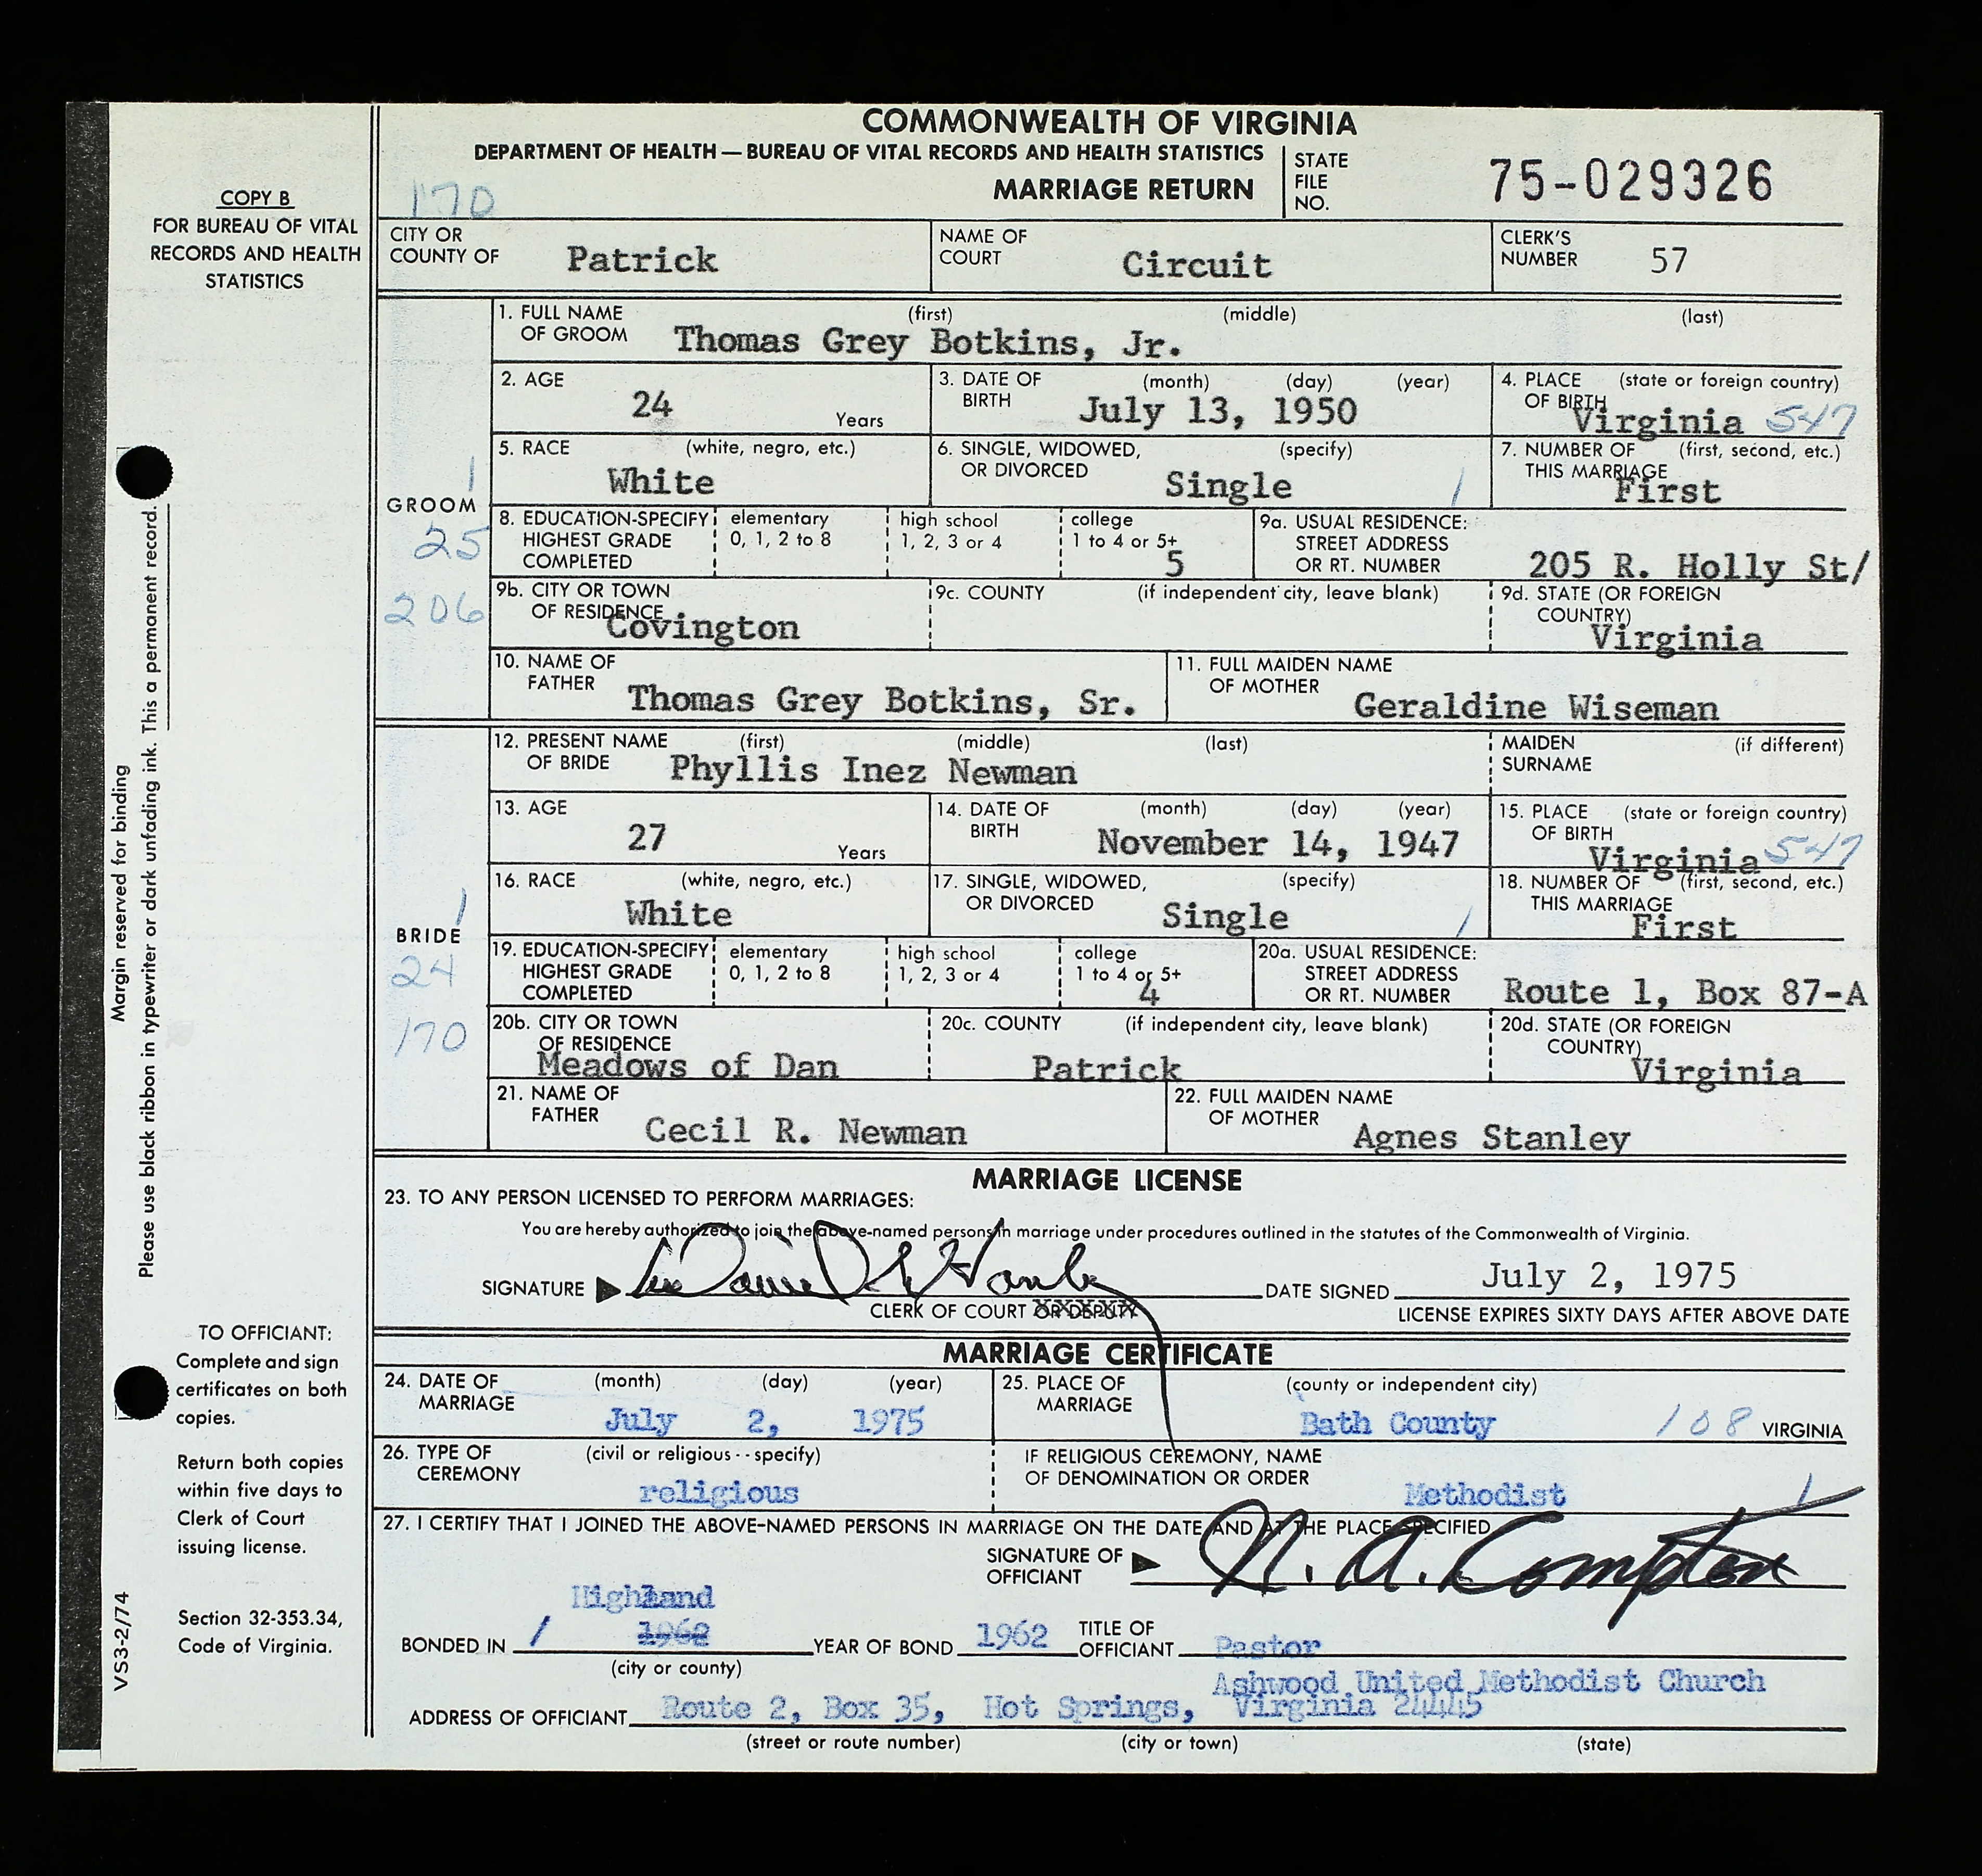 COMMONWEALTH OF VIRGINIA
DEPARTMENT OF HEALTH — BUREAU OF VITAL RECORDS AND HEALTH STATISTICS
170
MARRIAGE RETURN
STATE FILE NO. 75-029326
COPY B
FOR BUREAU OF VITAL
RECORDS AND HEALTH
STATISTICS
CITY OR COUNTY OF Patrick
NAME OF COURT Circuit
CLERK'S NUMBER 57
GROOM
1
25
206
1. FULL NAME OF GROOM (first) (middle) (last)
Thomas Grey Botkins, Jr.
2. AGE 24 Years
3. DATE OF BIRTH (month) (day) (year)
July 13, 1950
4. PLACE OF BIRTH (state or foreign country)
Virginia 547
5. RACE (white, negro, etc.)
White
6. SINGLE, WIDOWED, OR DIVORCED (specify)
Single 1
7. NUMBER OF THIS MARRIAGE (first, second, etc.)
First
8. EDUCATION-SPECIFY HIGHEST GRADE COMPLETED
elementary 0, 1, 2 to 8
high school 1, 2, 3 or 4
college 1 to 4 or 5+
5
9a. USUAL RESIDENCE: STREET ADDRESS OR RT. NUMBER
205 R. Holly St/
9b. CITY OR TOWN OF RESIDENCE
Covington
9c. COUNTY (if independent city, leave blank)
9d. STATE (OR FOREIGN COUNTRY)
Virginia
10. NAME OF FATHER
Thomas Grey Botkins, Sr.
11. FULL MAIDEN NAME OF MOTHER
Geraldine Wiseman
BRIDE
1
24
170
12. PRESENT NAME OF BRIDE (first) (middle) (last)
Phyllis Inez Newman
MAIDEN SURNAME (if different)
13. AGE 27 Years
14. DATE OF BIRTH (month) (day) (year)
November 14, 1947
15. PLACE OF BIRTH (state or foreign country)
Virginia 547
16. RACE (white, negro, etc.)
White
17. SINGLE, WIDOWED, OR DIVORCED (specify)
Single 1
18. NUMBER OF THIS MARRIAGE (first, second, etc.)
First
19. EDUCATION-SPECIFY HIGHEST GRADE COMPLETED
elementary 0, 1, 2 to 8
high school 1, 2, 3 or 4
college 1 to 4 or 5+
4
20a. USUAL RESIDENCE: STREET ADDRESS OR RT. NUMBER
Route 1, Box 87-A
20b. CITY OR TOWN OF RESIDENCE
Meadows of Dan
20c. COUNTY (if independent city, leave blank)
Patrick
20d. STATE (OR FOREIGN COUNTRY)
Virginia
21. NAME OF FATHER
Cecil R. Newman
22. FULL MAIDEN NAME OF MOTHER
Agnes Stanley
MARRIAGE LICENSE
23. TO ANY PERSON LICENSED TO PERFORM MARRIAGES:
You are hereby authorized to join the above-named persons in marriage under procedures outlined in the statutes of the Commonwealth of Virginia.
SIGNATURE
CLERK OF COURT OR DEPUTY
DATE SIGNED July 2, 1975
LICENSE EXPIRES SIXTY DAYS AFTER ABOVE DATE
MARRIAGE CERTIFICATE
24. DATE OF MARRIAGE (month) (day) (year)
July 2, 1975
25. PLACE OF MARRIAGE (county or independent city)
Bath County 108 VIRGINIA
26. TYPE OF CEREMONY (civil or religious -- specify)
religious
IF RELIGIOUS CEREMONY, NAME OF DENOMINATION OR ORDER
Methodist 1
27. I CERTIFY THAT I JOINED THE ABOVE-NAMED PERSONS IN MARRIAGE ON THE DATE AND AT THE PLACE SPECIFIED
SIGNATURE OF OFFICIANT N. A. Compton
Highland
BONDED IN / 1962 YEAR OF BOND 1962
(city or county)
TITLE OF OFFICIANT Pastor
Ashwood United Methodist Church
ADDRESS OF OFFICIANT Route 2, Box 35, Hot Springs, Virginia 24445
(street or route number) (city or town) (state)
Margin reserved for binding
Please use black ribbon in typewriter or dark unfading ink. This a permanent record.
TO OFFICIANT:
Complete and sign
certificates on both
copies.
Return both copies
within five days to
Clerk of Court
issuing license.
Section 32-353.34,
Code of Virginia.
VS3-2/74